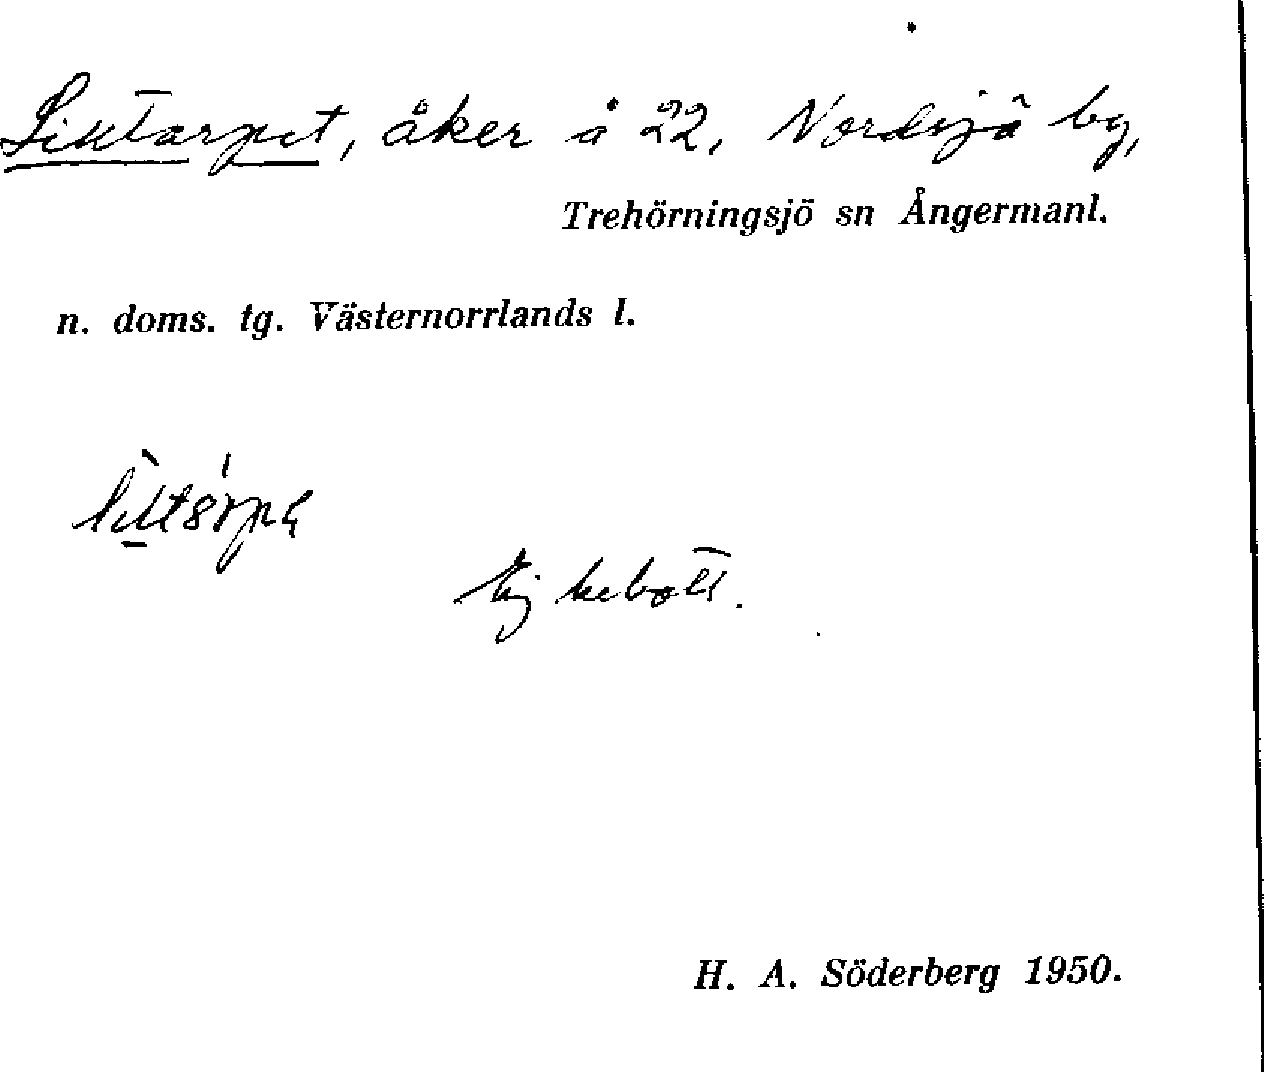 åker å 22, Nordsjö by,
Trehörningsjö sn Ångermanl.
n. doms. tg. Västernorrlands l.
Ej bebott.
H. A. Söderberg 1950.